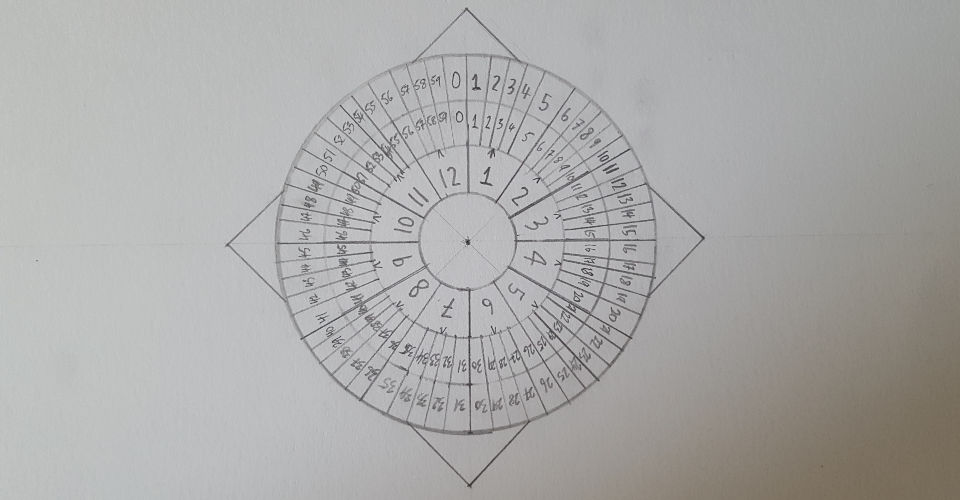 0 1 2 3 4 5 6 7 8 9 10 11 12 13 14 15 16 17 18 19 20 21 22 23 24 25 26 27 28 29 30 31 32 33 34 35 36 37 38 39 40 41 42 43 44 45 46 47 48 49 50 51 52 53 54 55 56 57 58 59
0 1 2 3 4 5 6 7 8 9 10 11 12 13 14 15 16 17 18 19 20 21 22 23 24 25 26 27 28 29 30 31 32 33 34 35 36 37 38 39 40 41 42 43 44 45 46 47 48 49 50 51 52 53 54 55 56 57 58 59
12 1 2 3 4 5 6 7 8 9 10 11